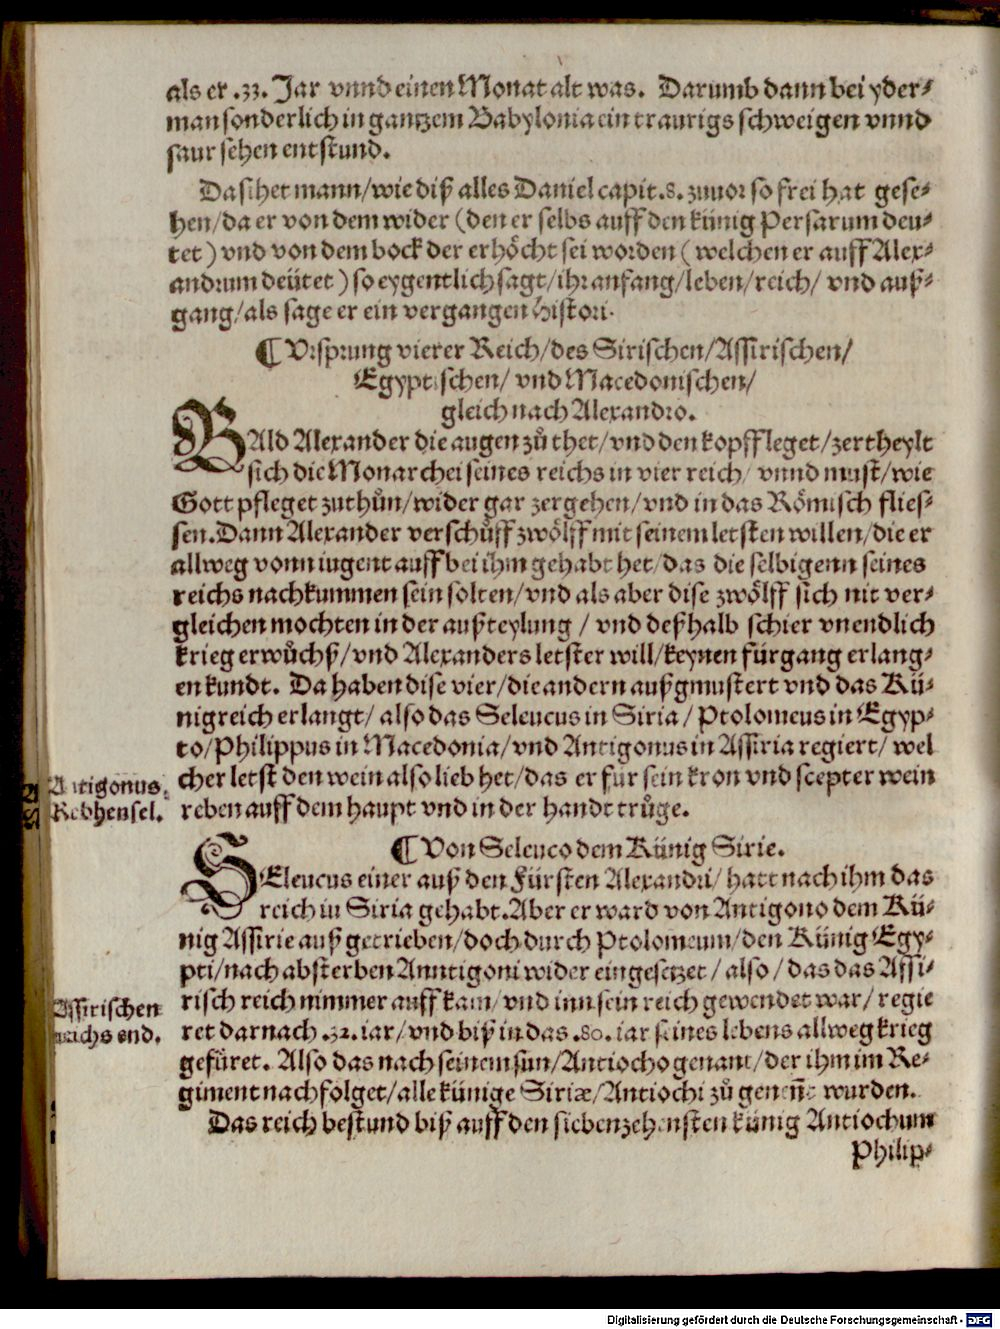 als er .33. Jar vnnd einen Monat alt was. Darumb dann bei yder⸗
man sonderlich in gantzem Babylonia ein traurigs schweigen vnnd
saur sehen entstund.
Da sihet mann/wie diß alles Daniel capit.8. zuuor so frei hat gese⸗
hen/da er von dem wider (den er selbs auff den künig Persarum deu⸗
tet) vnd von dem bock der erhöcht sei worden (welchen er auff Alex⸗
andrum deütet) so eygentlich sagt/ihr anfang/leben/reich/ vnd auß⸗
gang/als sage er ein vergangen histori.
¶ Vrsprung vierer Reich/des Sirischen/Assirischen/
Egyptischen/ vnd Macedonischen/
gleich nach Alexandro.
BAld Alexander die augen zůthet/vnd den kopff leget/zertheylt
sich die Monarchei seines reichs in vier reich/ vnnd must/wie
Gott pfleget zuthůn/wider gar zergehen/vnd in das Römisch flies⸗
sen. Dann Alexander verschůff zwölff mit seinem letsten willen/die er
allweg vonn iugent auff bei ihm gehabt het/das die selbigenn seines
reichs nachkummen sein solten/vnd als aber dise zwölff sich nit ver⸗
gleichen mochten in der außteylung / vnd deßhalb schier vnendlich
krieg erwůchß/vnd Alexanders letster will/keynen fürgang erlang⸗
en kundt. Da haben dise vier/die andern außgmustert vnd das Kü⸗
nigreich erlangt/ also das Seleucus in Siria / Ptolomeus in Egyp⸗
to/Philippus in Macedonia/vnd Antigonus in Assiria regiert/ wel
cher letst den wein also lieb het/das er für sein kron vnd scepter wein
reben auff dem haupt vnd in der handt trůge.
Antigonus
Rebhensel.
¶ Von Seleuco dem Künig Sirie.
SEleucus einer auß den Fürsten Alexandri/ hatt nach ihm das
reich in Siria gehabt. Aber er ward von Antigono dem Kü⸗
nig Assirie auß getrieben/doch durch Ptolomeum/den Künig Egy⸗
pti/nach absterben Anntigoni wider eingesetzet / also / das das Assi⸗
risch reich nimmer auff kam/vnd inn sein reich gewendet war/ regie
ret darnach .32. iar/vnd biß in das .80. iar seines lebens allweg krieg
gefüret. Also das nach seinem sun/Antiocho genant/der ihm im Re⸗
giment nachfolget/alle künige Siriæ/Antiochi zů geneñt wurden.
Assirischen
reichs end.
Das reich bestund biß auff den siebenzehensten künig Antiochum
Philip⸗
Digitalisierung gefördert durch die Deutsche Forschungsgemeinschaft - DFG